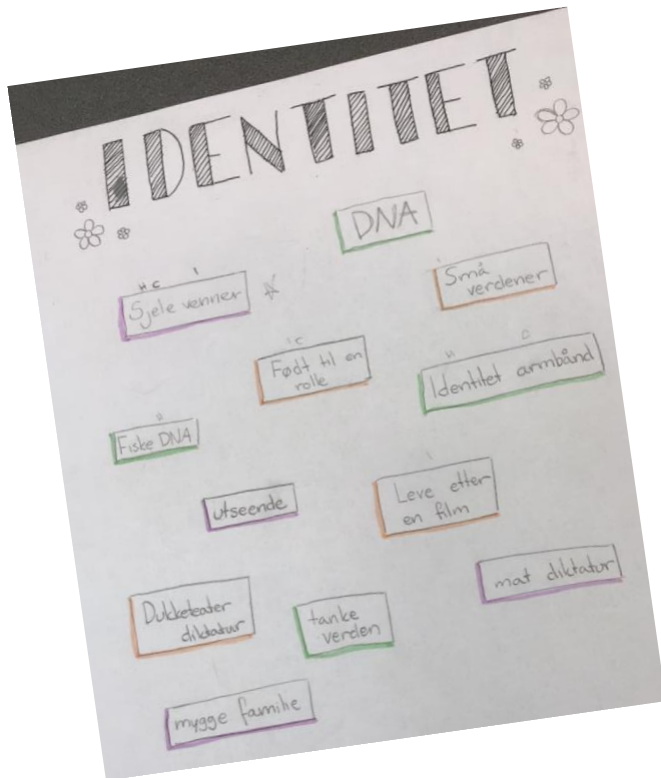 IDENTITET
DNA
H C I
Sjele venner
Små
verdener
I C
Født til en
rolle
Identitet armbånd
Fiske DNA
utseende
Leve etter
en film
mat diktatur
Dukketeater
diktatur
tanke
verden
mygge familie